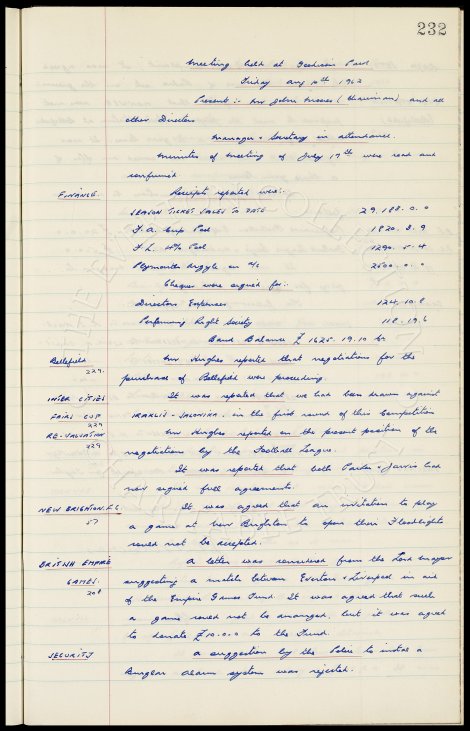 232
Meeting held at Goodison Park
Friday Aug 10th 1962
Present :- Mr John Moores (Chairman) and all
other Directors
Manager + Secretary in attendance.
Minutes of meeting of July 17th were read and
confirmed
FINANCE. Receipts reported were:-
SEASON TICKET SALES TO DATE 29.188.0.0
F.A. Cup Pool 1820.3.9
F.L. 4% Pool 1290.5.4
Plymouth Argyle on a/c 2500.0.0
Cheques were signed for:-
Directors Expenses 124.10.8
Performing Right Society 118.19.6
Bank Balance £ 1625.19.10 Cr.
Bellefield Mr Hughes reported that negotiations for the
229. purchase of Bellefield were proceeding.
INTER CITIES It was reported that we had been drawn against
FAIRS CUP IRAKLIS - SALONIKA. in the first round of this Competition
229
RE-VALUATION Mr Hughes reported on the present position of the
229 negotiations by the Football League.
It was reported that both Parker + Jarvis had
now signed full agreements.
NEW BRIGHTON. F.C. It was agreed that an invitation to play
57 a game at New Brighton to open their Floodlights
could not be accepted.
BRITISH EMPIRE A letter was considered from the Lord Mayor
GAMES. suggesting a match between Everton + Liverpool in aid
208 of the Empire Games Fund. It was agreed that such
a game could not be arranged, but it was agreed
to donate £10.0.0 to the Fund.
SECURITY A suggestion by the Police to instal a
Burglar alarm system was rejected.